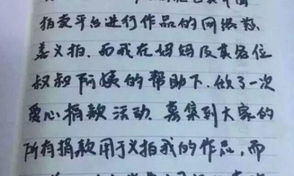 拍卖平台进行作品的网络慈
善义拍。而我在妈妈及各位
叔叔阿姨的帮助下，做了一次
爱心捐款活动，募集到大家的
所有捐款用于义拍我的作品，而